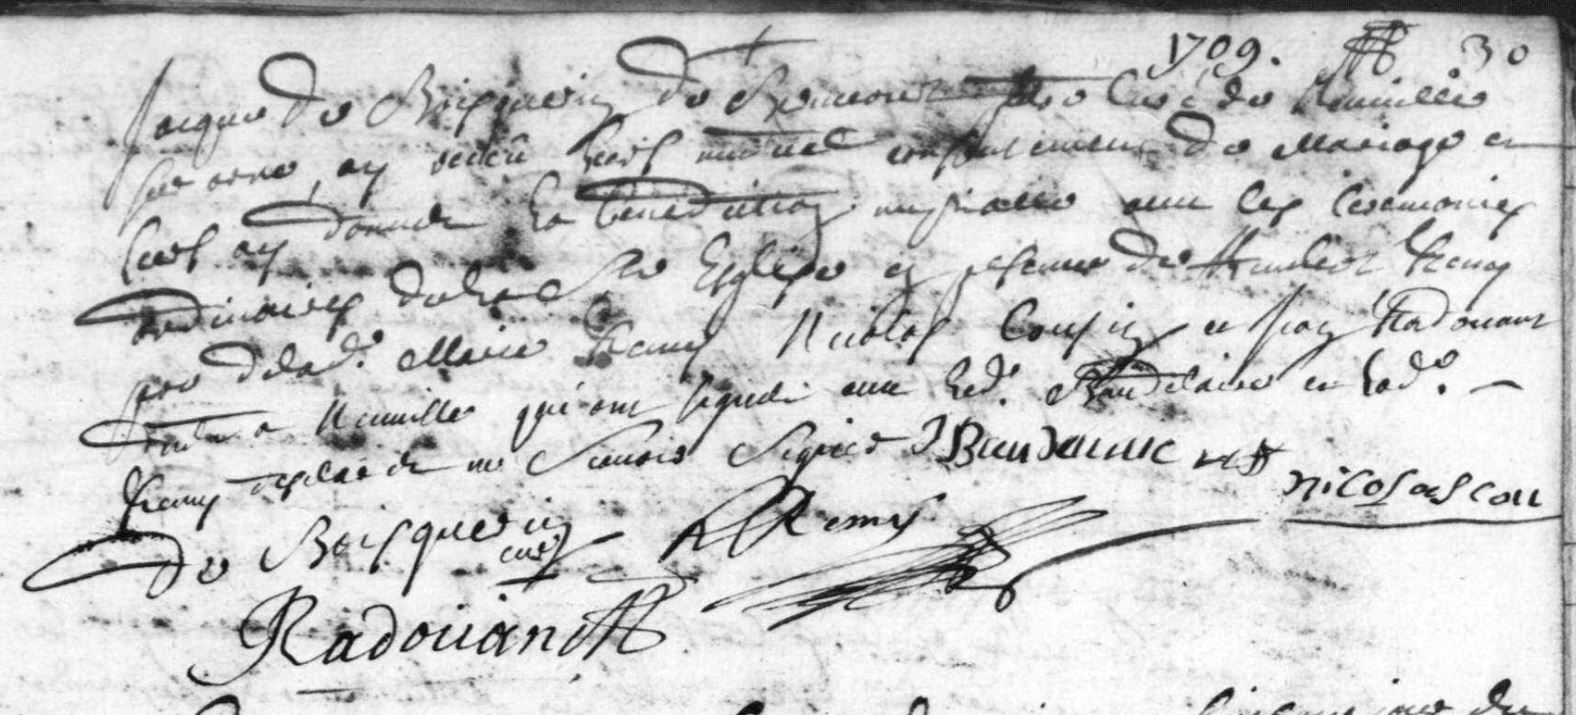 1709. 30
Jacque De Boisguerin De Remcourt pbre Curé de Neuville
sur orne, ay receu leurs mutuel consentement De Mariage et
leurs ay donné la benediction nuptialle avec les ceremonies
ordinaires de la Ste Eglise en presence de Humbert Remy
pere de lad. Marie Remy Nicolas Cousin et Jean Radouant
de Neuville qui ont signé avec led. Baudelaire et lad.
Remy declaré ne Scavoir Signer
De Boisguerin curé H Remy nicolas cou
Radouan